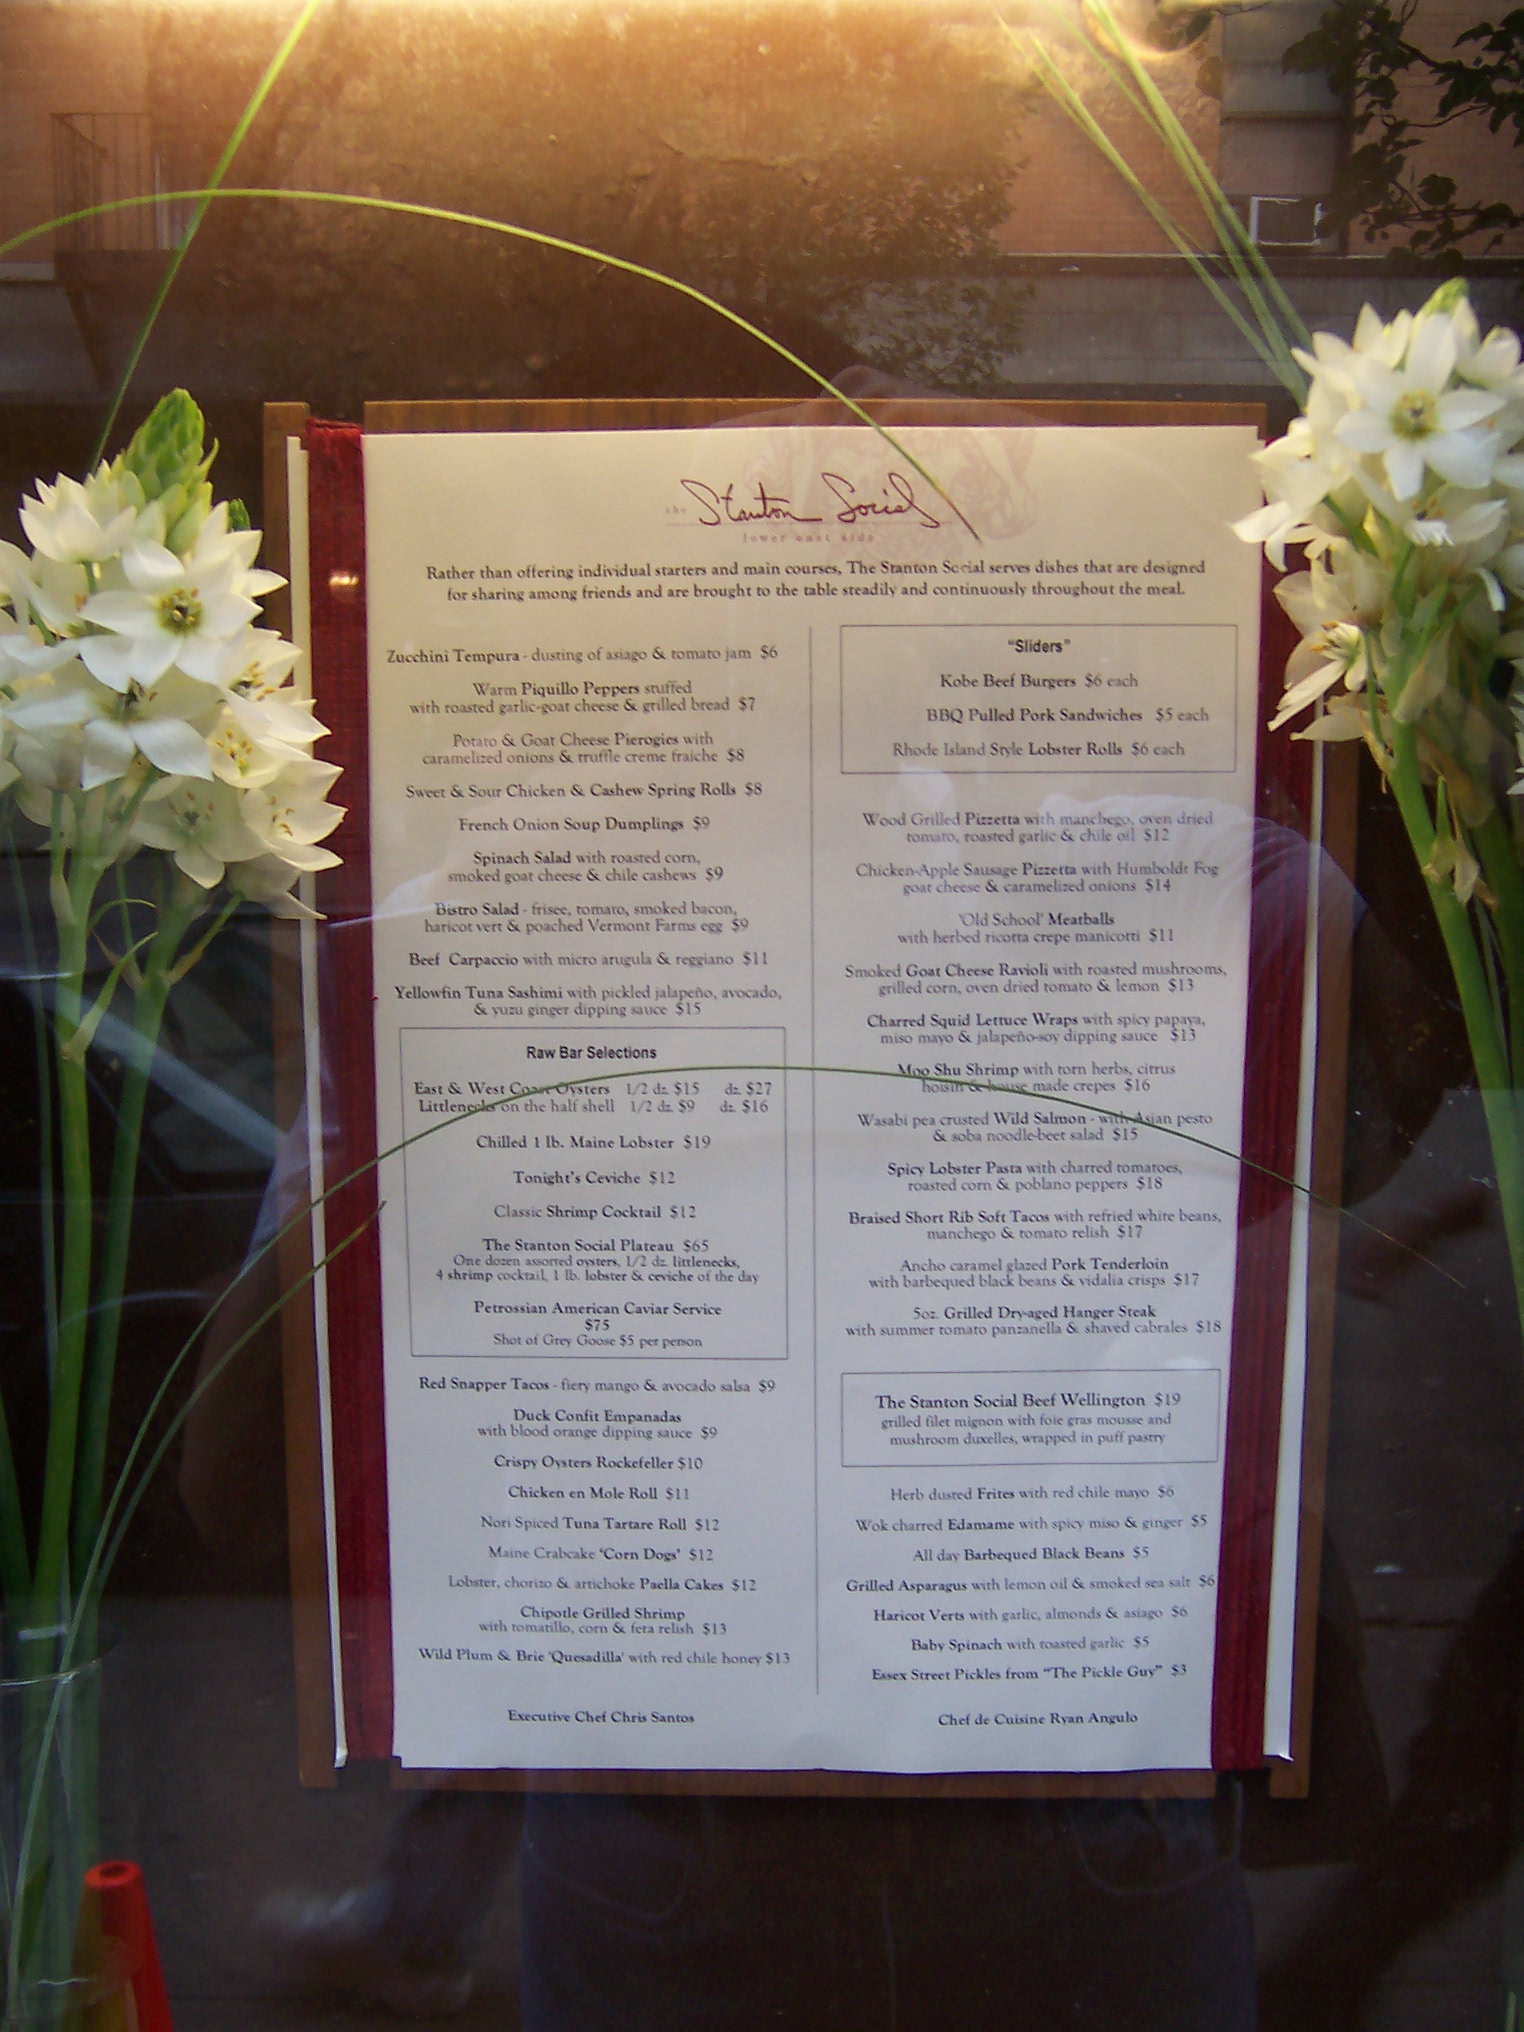 the Stanton Social
lower east side
Rather than offering individual starters and main courses, The Stanton Social serves dishes that are designed
for sharing among friends and are brought to the table steadily and continuously throughout the meal.
Zucchini Tempura - dusting of asiago & tomato jam $6
Warm Piquillo Peppers stuffed
with roasted garlic-goat cheese & grilled bread $7
Potato & Goat Cheese Pierogies with
caramelized onions & truffle creme fraiche $8
Sweet & Sour Chicken & Cashew Spring Rolls $8
French Onion Soup Dumplings $9
Spinach Salad with roasted corn,
smoked goat cheese & chile cashews $9
Bistro Salad - frisee, tomato, smoked bacon,
haricot vert & poached Vermont Farms egg $9
Beef Carpaccio with micro arugula & reggiano $11
Yellowfin Tuna Sashimi with pickled jalapeño, avocado,
& yuzu ginger dipping sauce $15
Raw Bar Selections
East & West Coast Oysters 1/2 dz. $15 dz. $27
Littlenecks on the half shell 1/2 dz. $9 dz. $16
Chilled 1 lb. Maine Lobster $19
Tonight's Ceviche $12
Classic Shrimp Cocktail $12
The Stanton Social Plateau $65
One dozen assorted oysters, 1/2 dz. littlenecks,
4 shrimp cocktail, 1 lb. lobster & ceviche of the day
Petrossian American Caviar Service
$75
Shot of Grey Goose $5 per person
Red Snapper Tacos - fiery mango & avocado salsa $9
Duck Confit Empanadas
with blood orange dipping sauce $9
Crispy Oysters Rockefeller $10
Chicken en Mole Roll $11
Nori Spiced Tuna Tartare Roll $12
Maine Crabcake 'Corn Dogs' $12
Lobster, chorizo & artichoke Paella Cakes $12
Chipotle Grilled Shrimp
with tomatillo, corn & feta relish $13
Wild Plum & Brie 'Quesadilla' with red chile honey $13
Executive Chef Chris Santos
"Sliders"
Kobe Beef Burgers $6 each
BBQ Pulled Pork Sandwiches $5 each
Rhode Island Style Lobster Rolls $6 each
Wood Grilled Pizzetta with manchego, oven dried
tomato, roasted garlic & chile oil $12
Chicken-Apple Sausage Pizzetta with Humboldt Fog
goat cheese & caramelized onions $14
'Old School' Meatballs
with herbed ricotta crepe manicotti $11
Smoked Goat Cheese Ravioli with roasted mushrooms,
grilled corn, oven dried tomato & lemon $13
Charred Squid Lettuce Wraps with spicy papaya,
miso mayo & jalapeño-soy dipping sauce $13
Moo Shu Shrimp with torn herbs, citrus
hoisin & house made crepes $16
Wasabi pea crusted Wild Salmon - with Asian pesto
& soba noodle-beet salad $15
Spicy Lobster Pasta with charred tomatoes,
roasted corn & poblano peppers $18
Braised Short Rib Soft Tacos with refried white beans,
manchego & tomato relish $17
Ancho caramel glazed Pork Tenderloin
with barbequed black beans & vidalia crisps $17
5oz. Grilled Dry-aged Hanger Steak
with summer tomato panzanella & shaved cabrales $18
The Stanton Social Beef Wellington $19
grilled filet mignon with foie gras mousse and
mushroom duxelles, wrapped in puff pastry
Herb dusted Frites with red chile mayo $6
Wok charred Edamame with spicy miso & ginger $5
All day Barbequed Black Beans $5
Grilled Asparagus with lemon oil & smoked sea salt $6
Haricot Verts with garlic, almonds & asiago $6
Baby Spinach with roasted garlic $5
Essex Street Pickles from "The Pickle Guy" $3
Chef de Cuisine Ryan Angulo